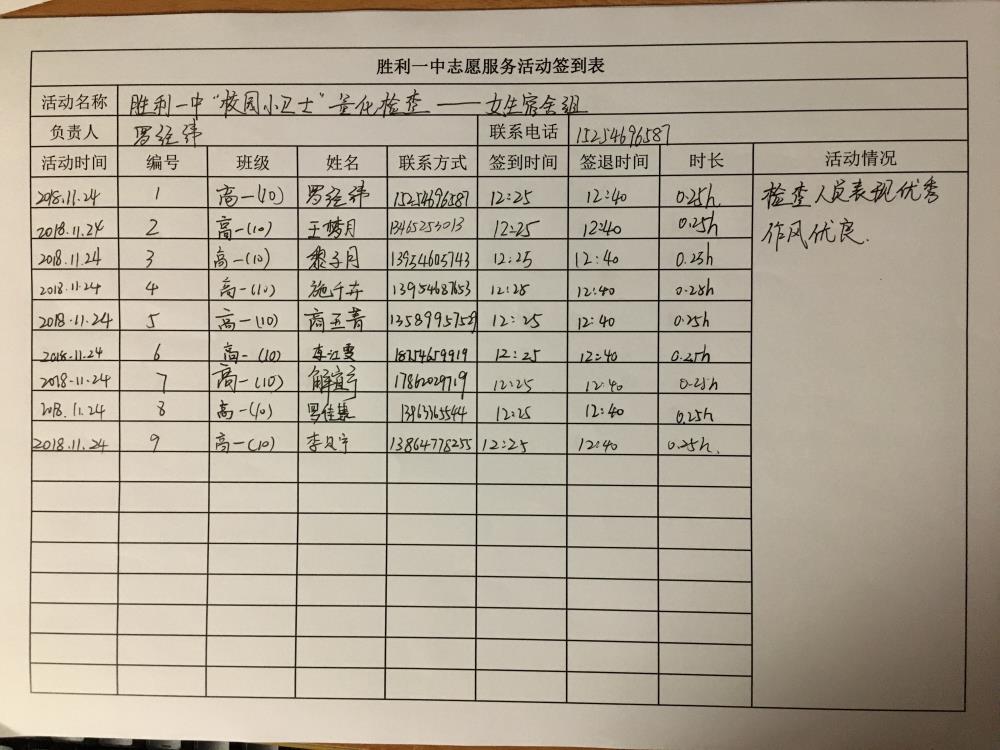 胜利一中志愿服务活动签到表
活动名称 胜利一中"校园小卫士"量化检查——女生宿舍组
负责人 罗经纬 联系电话 15254696587
活动时间 编号 班级 姓名 联系方式 签到时间 签退时间 时长 活动情况
2018.11.24 1 高一(10) 罗经纬 15254696587 12:25 12:40 0.25h 检查人员表现优秀
2018.11.24 2 高一(10) 王梦月 13465253013 12:25 12:40 0.25h 作风优良.
2018.11.24 3 高一(10) 黎子月 13954605743 12:25 12:40 0.25h
2018.11.24 4 高一(10) 施千卉 13954687653 12:25 12:40 0.25h
2018.11.24 5 高一(10) 商玉菁 13589957529 12:25 12:40 0.25h
2018.11.24 6 高一(10) 李江雯 18754659919 12:25 12:40 0.25h
2018.11.24 7 高一(10) 解宜 17862029719 12:25 12:40 0.25h
2018.11.24 8 高一(10) 罗佳慧 13963365544 12:25 12:40 0.25h
2018.11.24 9 高一(10) 李贝宁 13864778255 12:25 12:40 0.25h.